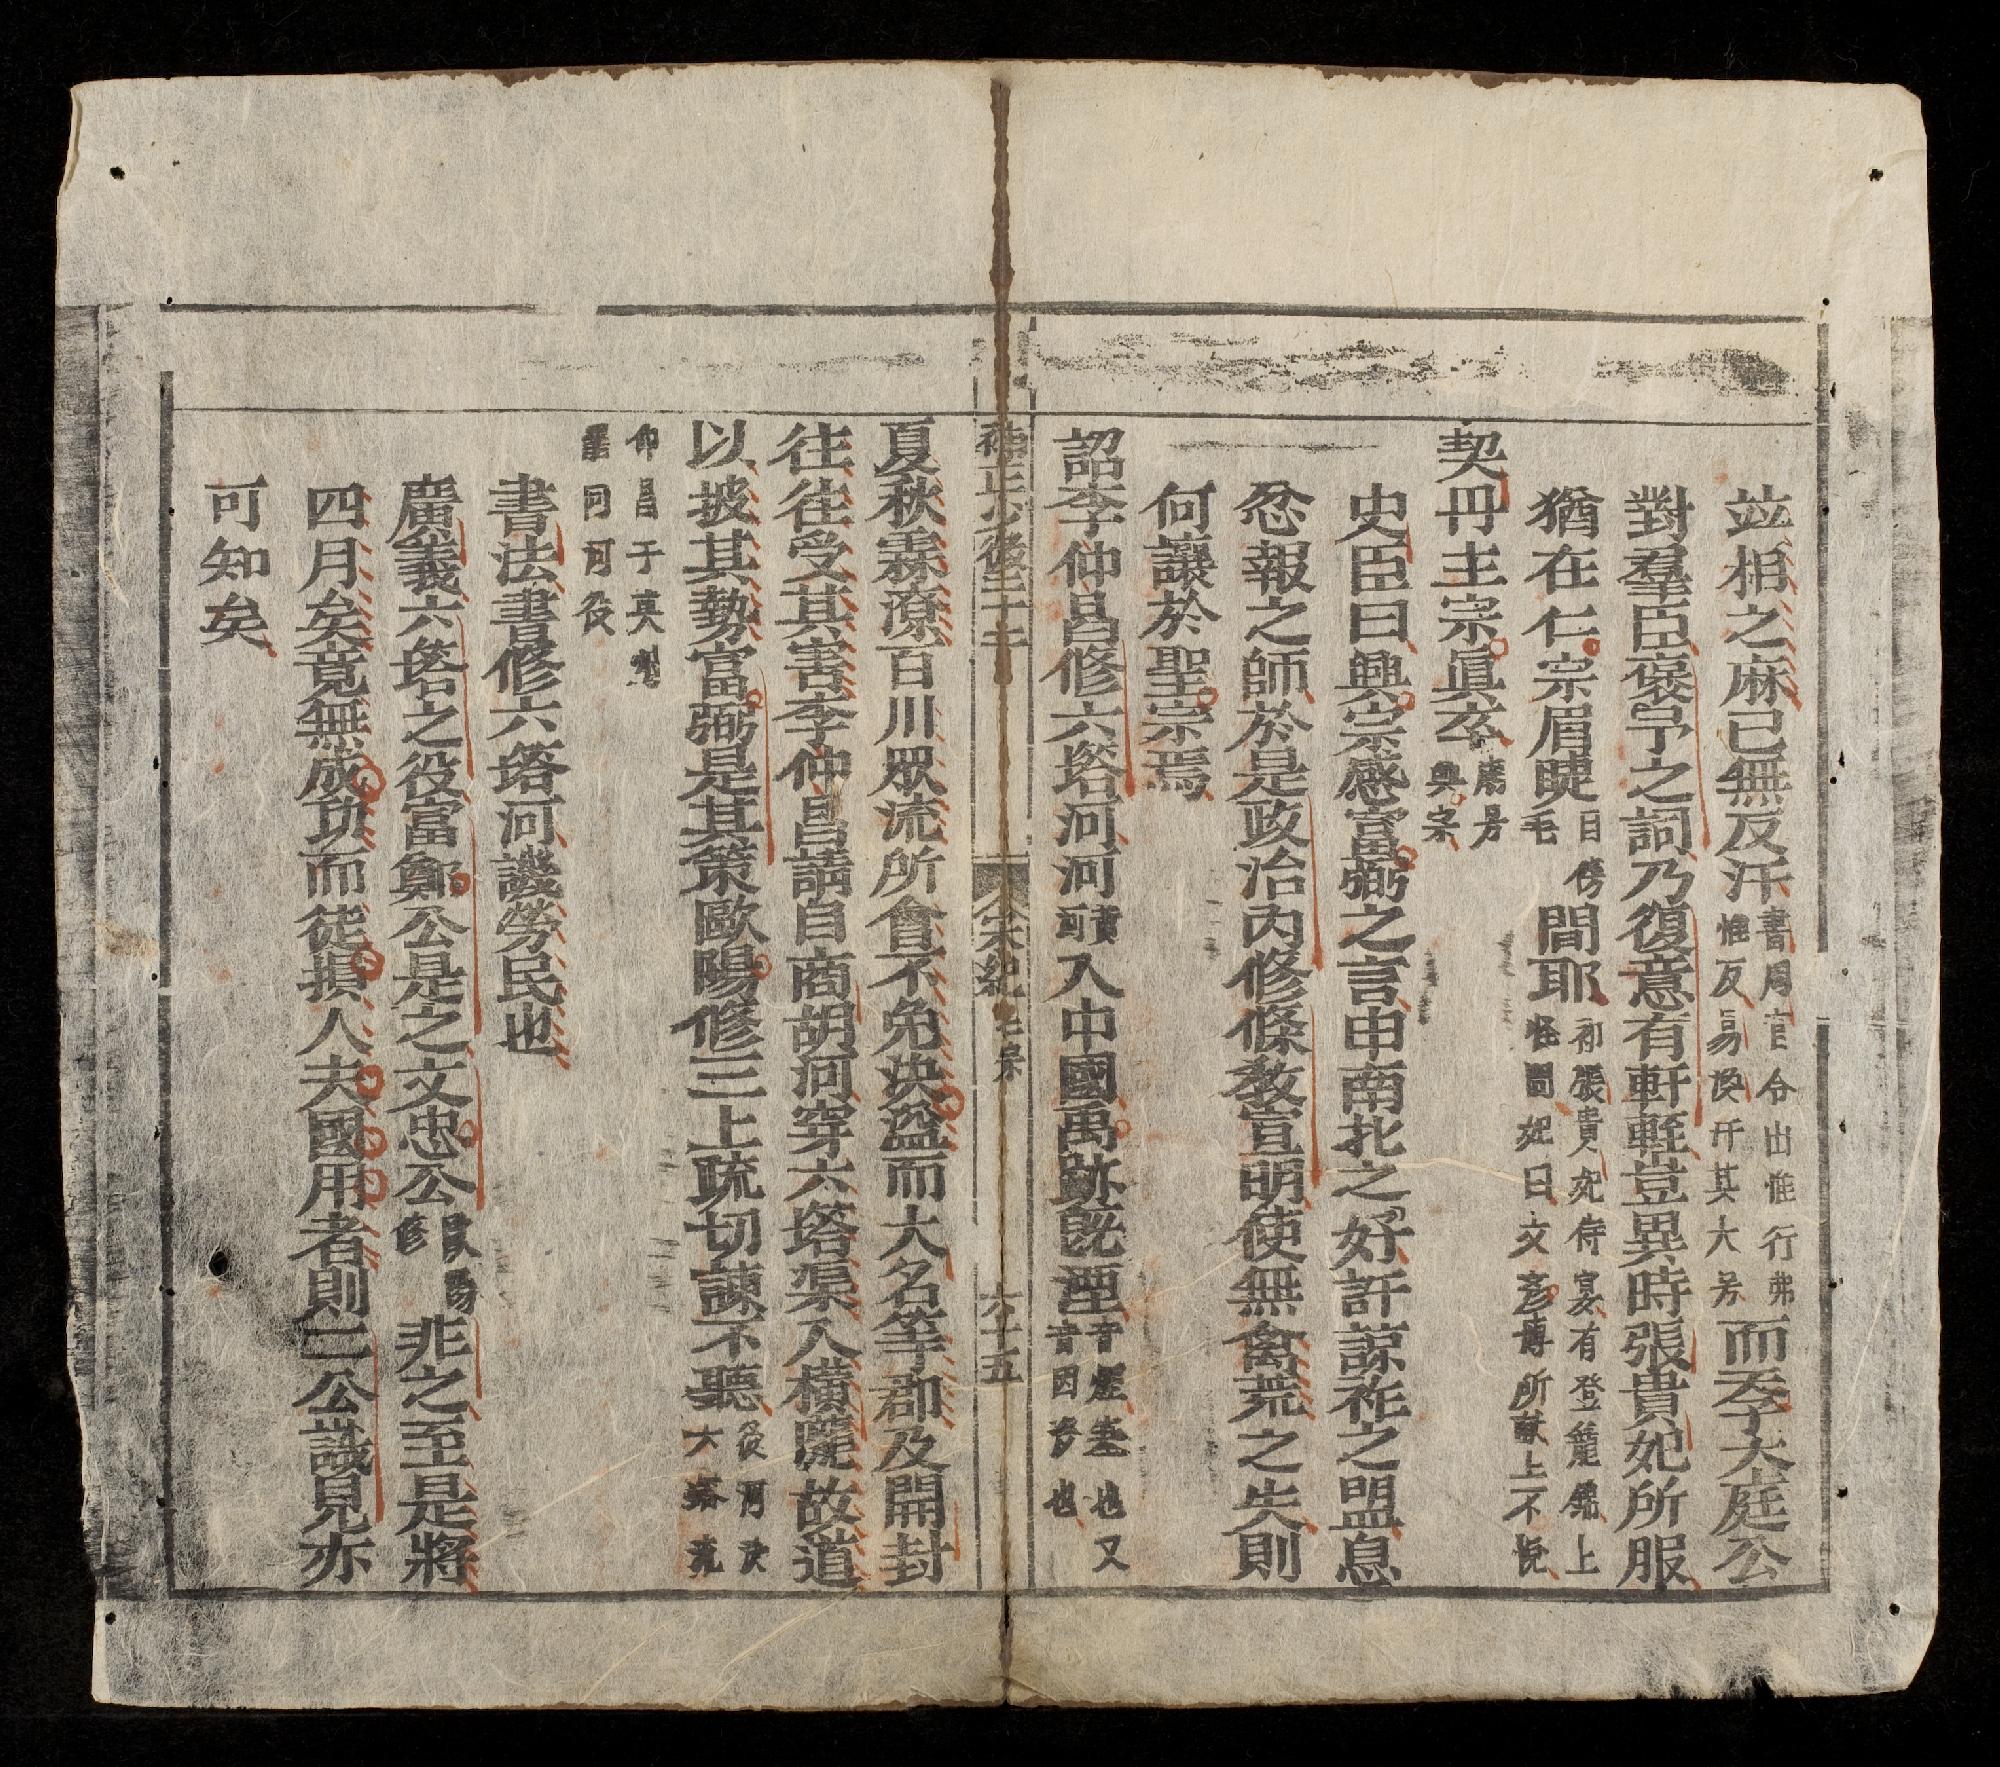 竝相之麻已無反汗書周官令出惟行弗惟反易渙汗其大号而呑大庭公
對羣臣褒予之詞乃復意有軒輊豈異時張貴妃所服
猶在仁宗眉睫目傍毛間耶初張貴妃侍宴有登籠錦上怪問妃曰文彥博所献上不悅
契丹主宗眞玄廟号興宗
史臣曰興宗感富弼之言申南北之好許諒祚之盟息
忿報之師於是政治內修條教宣明使無禽荒之失則
何讓於聖宗焉
詔李仲昌修六塔河河黄河入中國禹跡旣湮音煙塞也又音因沒也
補正少後二十
宋紀 仁宗
六十五
夏秋霖潦百川眾流所會不免決溢而大名等郡及開封
往往受其害李仲昌請自商胡河穿六塔渠入橫隴故道
以披其勢富弼是其策歐陽修三上疏切諫不聽後河決六塔流
仲昌于英罷同河役
書法書修六塔河譏勞民也
廣義六塔之役富鄭公是之文忠公歐陽修非之至是將
四月矣竟無成功而徒損人夫國用者則二公識見亦
可知矣